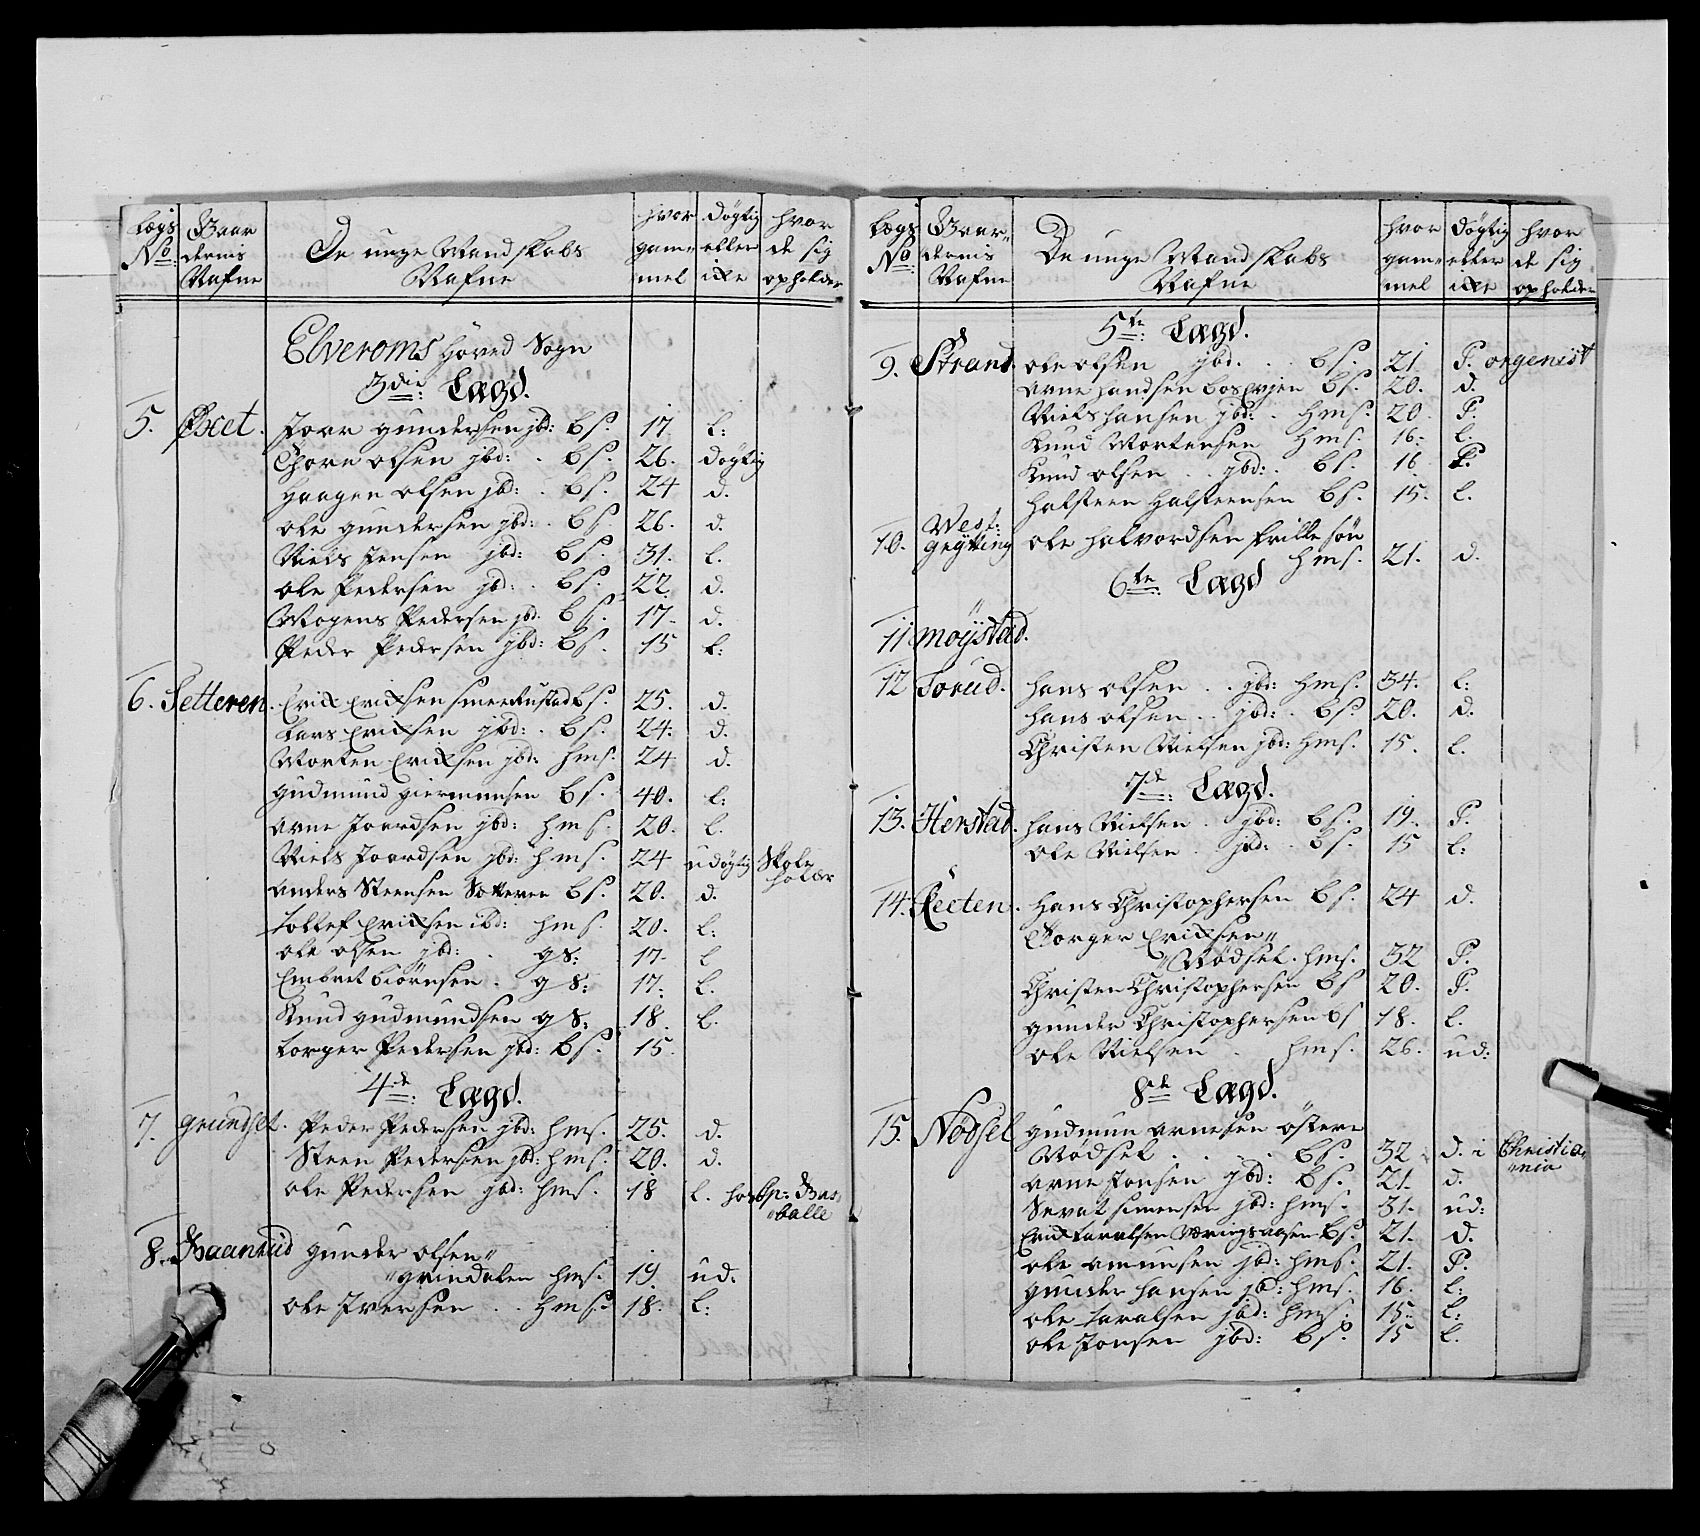 Lægs No: | Gaardernis Nafne | De unge Mandskabs Nafne | hvor gammel | døgtig eller ikke | hvor de sig opholder
Elveroms Hoved Sogn
3die Lægd.
5. gundersen jbd: bs. 17 l:
Thore olsen jbd: bs. 26. døgtig
Haagen olsen jbd: bs. 24 d.
ole gundersen jbd: bs. 26. d.
Niels Jensen jbd: bs. 31. l.
ole Pedersen jbd: bs. 22. d.
Mogens Pedersen jbd: bs. 17. d.
Peder Pedersen jbd: bs. 15 l:
6. Setteren. Erik Eriksen bs. 25. d.
Lars Eriksen jbd: bs. 24: d.
Morten Eriksen jbd: hms. 24 d.
gudmund giermunsen bs. 40. l:
arne Joardsen jbd: hms. 20. l.
Niels Joardsen jbd: hms. 24 udøgtig Skole holder
anders Steensen Setteren bs. 20. d.
tollef Eriksen ibd: hms. 20. l:
ole olsen jbd: gs: 17. l
Embret biørnsen. gs: 17. l.
Knud gudmundsen gs: 18. l.
torger Pedersen jbd: bs. 15.
4de Lægd.
7. grundset. Peder Pedersen jbd: hms. 25. d.
Steen Pedersen jbd: hms. 20. d.
ole Pedersen jbd: hms. 18 l. hos
8. gunder olsen
grindalen hms. 19. ud.
ole Iversen . . hms: 18. l:
Lægs No: | Gaardernis Nafne | De unge Mandskabs Nafne | hvor gammel | døgtig eller ikke | hvor de sig opholder
5te Lægd.
9. Strand. ole olsen jbd. . bs. 21. P. orgenist
arne handsen bs. 20. d.
Niels hansen jbd: hms. 20. P.
Knud Mortensen hms. 16: l.
Knud olsen . jbd: bs. 16 P.
halsteen halsteensen bs. 15. l.
10. West: grytting ole halvordsen frille søn
hms. 21. d.
6te Lægd
11 møystad.
12 Torud. hans olsen . . jbd: hms. 34. l:
hans olsen . . jbd: . bs. 20. d.
Christen Nielsen jbd: hms. 15. l.
7de Lægd.
13. Herstad. hans Nielsen . jbd: bs. 19. P.
ole Nielsen . jbd: . bs. 15 l:
14. hans Christophersen bs. 24 d.
Torger Eriksen
Nødsel. hms. 32 P.
Christen Christophersen bs 20. P.
gunder Christophersen bs 18. l.
ole Nielsen . hms. 26. ud:
8de Lægd.
15. Nødsel gudmun arnesen østere
Nødsel . . . bs. 32 d. i Christiania
arne Jonsen jbd: bs. 21. d.
simensen jbd: hms. 31. ud:
Erik taralsen bs. 21. d.
ole amunsen jbd: hms. 21. P.
gunder hansen jbd: hms. 16. l:
ole taralsen jbd: hms. 15: l:
ole Jonsen jbd: bs. 15 l.